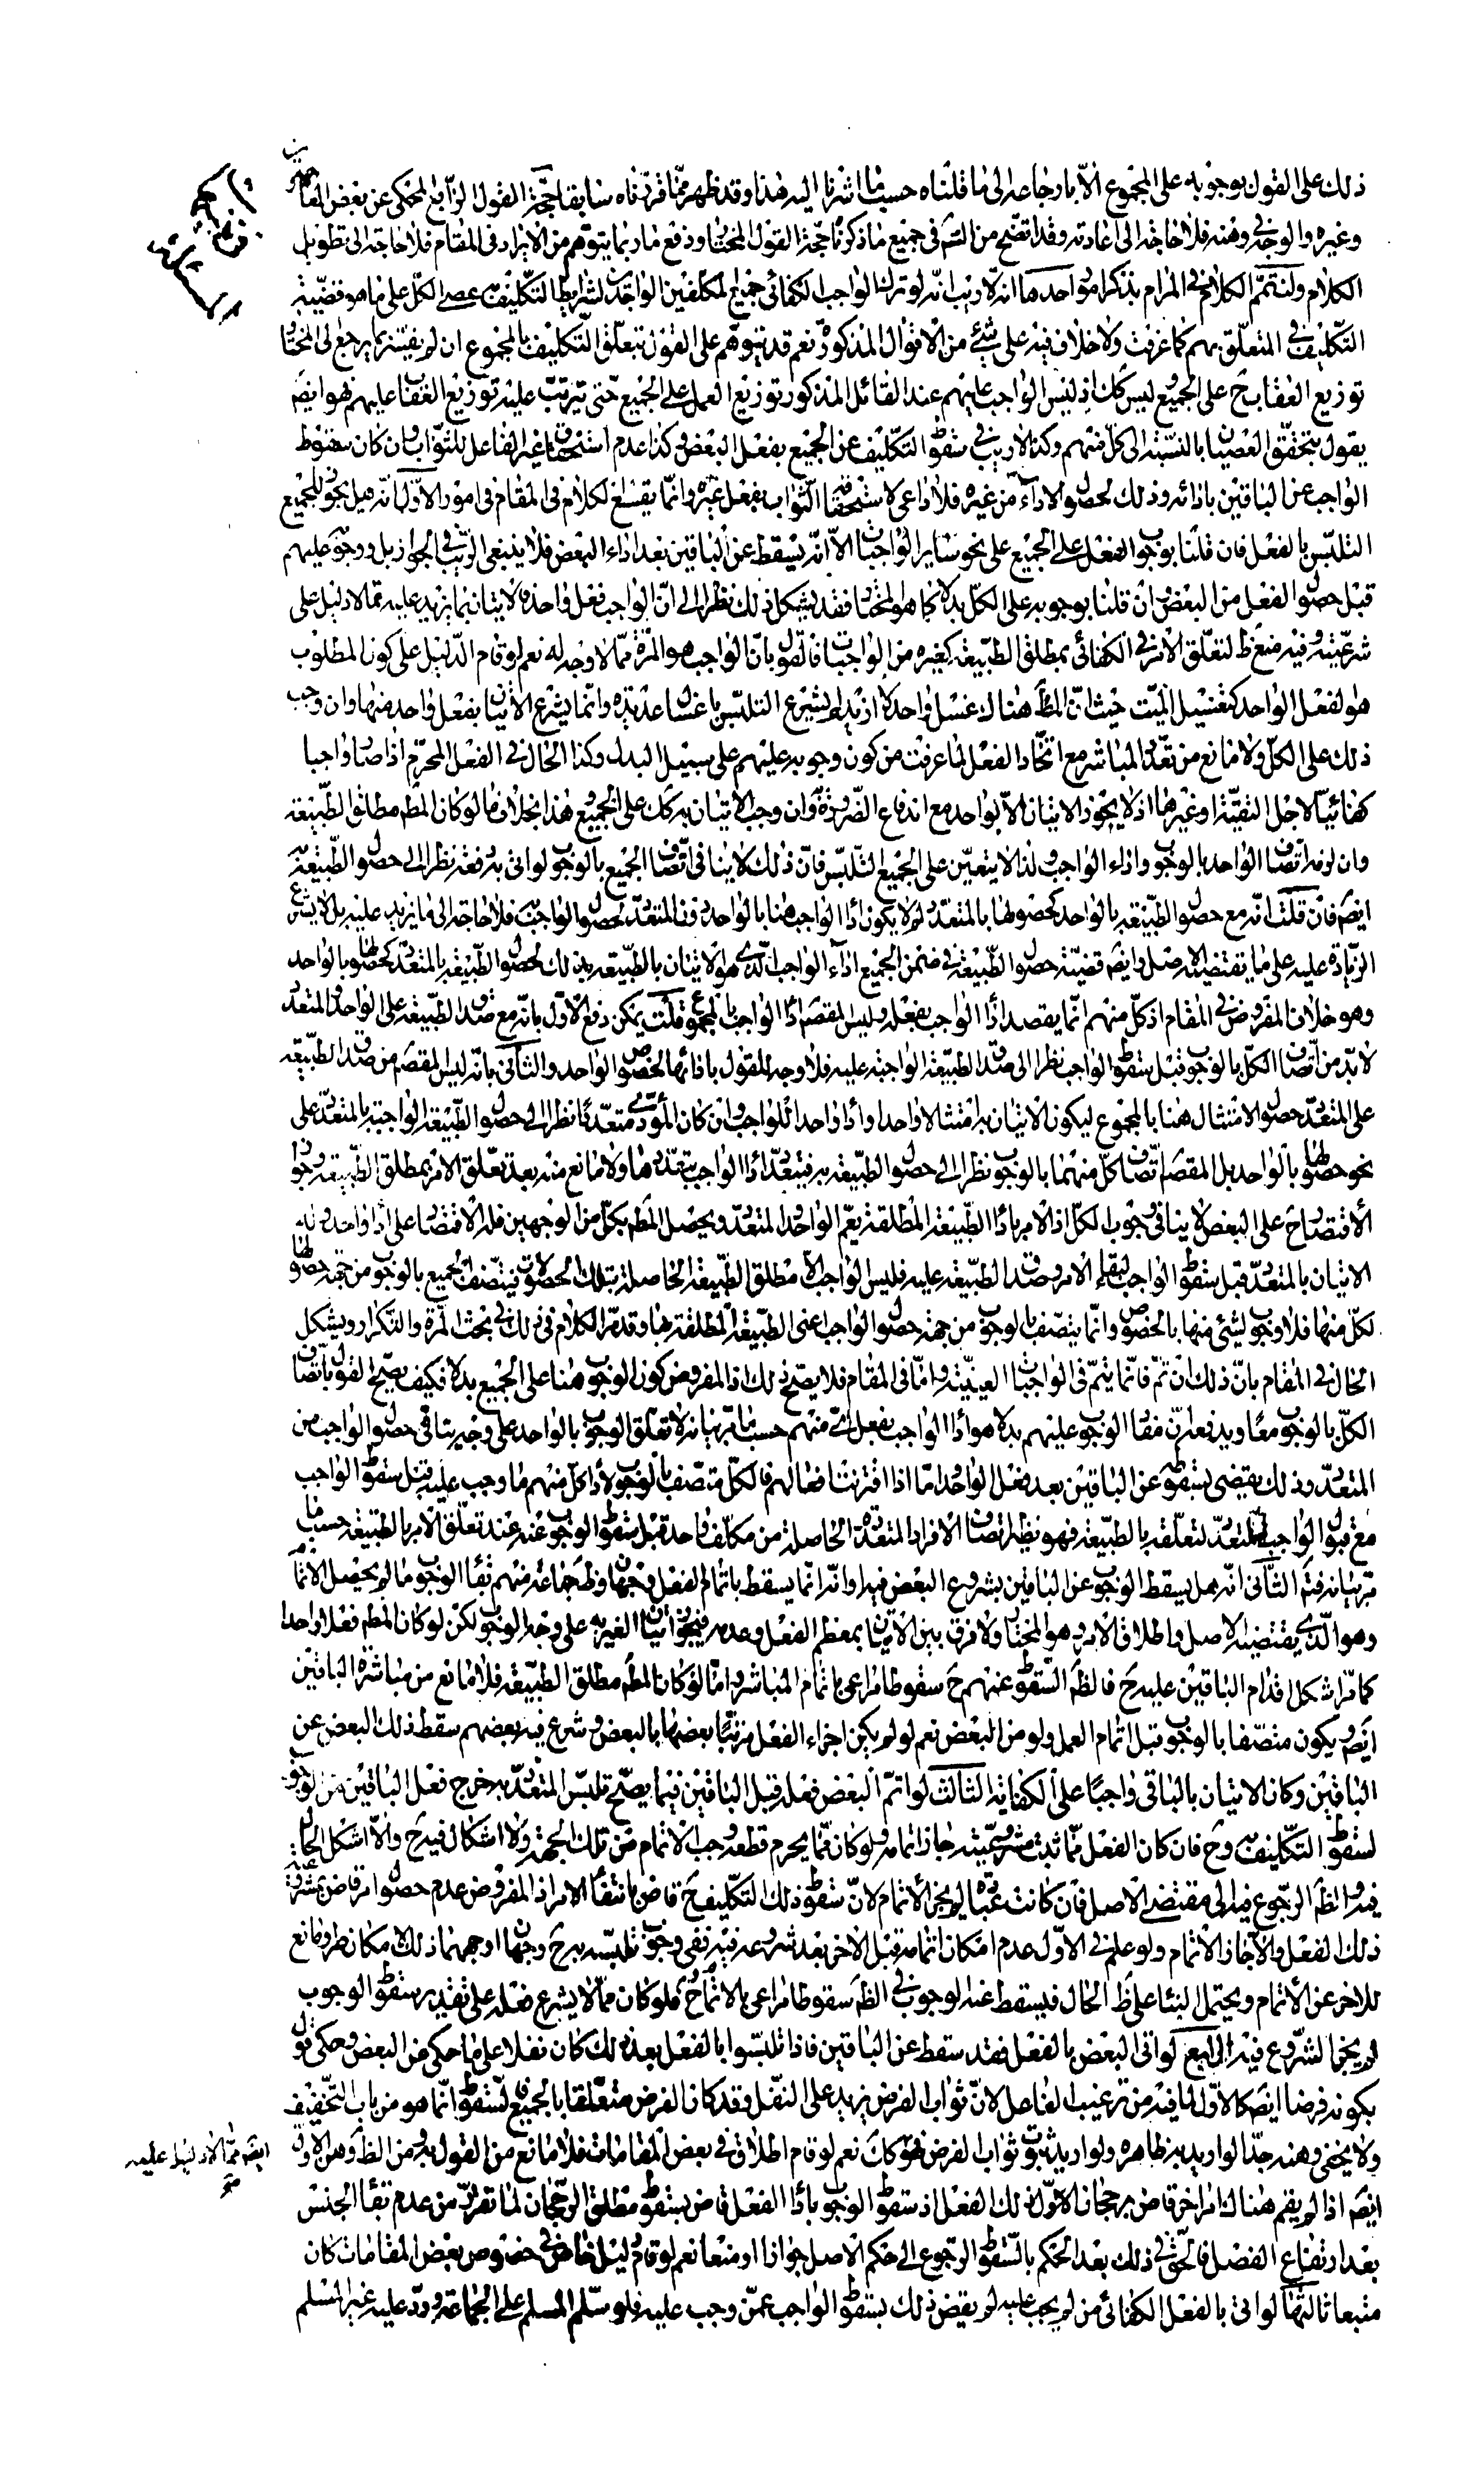 ذلك على القول بوجوبه على المجموع الا بارجاعه الى ما قلناه حسبما اشرنا اليه هذا وقد ظهر مما قررناه سابقا حجة القول الرابع المحكى عن بعض العامة
وغيره والوجه فى وهنه فلا حاجة الى اعادته وقد اتضح من التم فى جميع ما ذكرنا حجة القول المختار ودفع ما ربما يتوهم من الايراد فى المقام فلا حاجة الى تطويل
الكلام ولنتمم الكلام فى المرام بذكر امور احدها انه لا ريب انه لو ترك الواجب الكفائى جميع المكلفين الواجدين لشرايط التكليف به عصى الكل على ما هو قضية
التكليف المتعلق بهم كما عرفت ولا خلاف فيه على شىء من الاقوال المذكورة نعم قد يتوهم على القول بتعلق التكليف بالمجموع ان لم يفسر بما يرجع الى المختار
توزيع العقاب ح على الجميع وليس كك اذ ليس الواجب عليهم عند القائل المذكور توزيع العمل على الجميع حتى يترتب عليه توزيع العقاب عليهم فهو ايضا
يقول بتحقق العصيان بالنسبة الى كل منهم وكذا لا ريب فى سقوط التكليف عن الجميع بفعل البعض وكذا عدم استحقاق غير الفاعل للثواب وان كان سقوط
الواجب عن الباقين بادائه وذلك لحصول الاداء من غيره فلا داعى لاستحقاقه الثواب بفعل غيره وانما يقع الكلام فى المقام فى امور الاول انه هل يجوز للجميع
التلبس بالفعل فان قلنا بوجوب الفعل على الجميع على نحو ساير الواجبات الا انه يسقط عن الباقين بعد اداء البعض فلا ينبغى الريب فى الجواز بل ووجوبه عليهم
قبل حصول الفعل من البعض وان قلنا بوجوبه على الكل بدلا كما هو المختار فقد يشكل ذلك نظرا الى ان الواجب فعل واحد فالاتيان بما يزيد عليه مما لا دليل على
شرعيته وفيه منع ظ لتعلق الامر فى الكفائى بمطلق الطبيعة كغيره من الواجبات فالقول بان الواجب هو المرة مما لا وجه له نعم لو قام الدليل على كون المطلوب
هو الفعل الواحد كتغسيل الميت حيث ان المط هناك غسل واحد لا ازيد لم يشرع التلبس باغسال عديدة وانما يشرع الاتيان بفعل واحد منها وان وجب
ذلك على الكل ولا مانع من تعدد المباشر مع اتحاد الفعل لما عرفت من كون وجوبه عليهم على سبيل البدل وكذا الحال فى الفعل المحرم اذا صار واجبا
كفائيا لاجل التقية او غيرها اذ لا يجوز الاتيان الا بواحد مع اندفاع الضرورة وان وجب الاتيان به كك على الجميع هذا بخلاف ما لو كان المط مطلق الطبيعة
وان لوفه اتصف الواحد بالوجوب واداء الواجب ولذا لا يتعين على الجميع التلبس فان ذلك لا ينافى اتصاف الجميع بالوجوب لو اتى به دفعة نظرا الى حصول الطبيعة به
ايضا فان قلت انه مع حصول الطبيعة بالواحد كحصولها بالمتعدد لم لا يكون اداء الواجب هنا بالواحد دون المتعدد لحصول الواجب به فلا حاجة الى ما يزيد عليه بل لا يشرع
الزيادة عليه على ما يقتضيه الاصل وايضا قضية حصول الطبيعة فى ضمن الجميع اداء الواجب الذى هو الاتيان بالطبيعة بذلك لحصول الطبيعة بالمتعدد كحصولها بالواحد
وهو خلاف المفروض فى المقام اذ كل منهم انما يقصد اداء الواجب بفعله وليس المقصود اداء الواجب بالمجموع قلت يمكن دفع الاول بانه مع صدق الطبيعة على الواحد والمتعدد
لا بد من اتصاف الكل بالوجوب قبل سقوط الواجب نظرا الى صدق الطبيعة الواجبة عليه فلا وجه للقول بادائها بخصوص الواحد والثانى بانه ليس المقصود من صدق الطبيعة
على المتعدد حصول الامتثال هنا بالمجموع ليكون الاتيان به امتثالا واحدا واداء واحدا للواجب وان كان المؤدى متعددا نظرا الى حصول الطبيعة الواجبة بالمتعدد على
نحو حصولها بالواحد بل المقصود اتصاف كل منهما بالوجوب نظرا الى حصول الطبيعة به فيتعدد اداء الواجب بتعددها ولا مانع منه بعد تعلق الامر بمطلق الطبيعة وجواز
الاقتصار ح على البعض لا ينافى وجوب الكل اذ الامر باداء الطبيعة المطلقة يعم الواحد والمتعدد ويحصل المط بكل من الوجهين فله الاقتصار على اداء واحد وله
الاتيان بالمتعدد قبل سقوط الواجب لبقاء الامر وصدق الطبيعة عليه فليس الواجب الا مطلق الطبيعة الحاصلة بتلك الحصولات فيتصف الجميع بالوجوب من جهة حصولها
لكل منها فلا وجوب لشىء منها بالخصوص وانما يتصف بالوجوب من جهة حصول الواجب اعنى الطبيعة المطلقة بها وقد مر الكلام فى ذلك فى بحث المرة والتكرار ويشكل
الحال فى المقام بان ذلك ان تم فانما يتم فى الواجبات العينية واما فى المقام فلا يصح ذلك اذ المفروض كون الوجوب هنا على الجميع بدلا فكيف يصح القول باتصاف
الكل بالوجوب معا ويدفعه ان مفاد الوجوب عليهم بدلا هو اداء الواجب بفعل اى منهم حسبما مر بيانه لا تعلق الوجوب بالواحد على وجه ينافى حصول الواجب من
المتعدد وذلك يقتضى بسقوطه عن الباقين بعد فعل الواحد اما اذا اقترنت افعالهم فالكل متصف بالوجوب لاداء كل منهم ما وجب عليه قبل سقوط الواجب
مع قبول الواجب للتعدد لتعلقه بالطبيعة فهو نظير اتصاف الافراد المتعددة الحاصلة من مكلف واحد قبل سقوط الوجوب عنه عند تعلق الامر بالطبيعة حسبما
مر بيانه فيه الثانى انه هل يسقط الوجوب عن الباقين بشروع البعض فيه او انه انما يسقط باتمام الفعل وجهان وظ جماعة منهم بقاء الوجوب ما لم يحصل الاتمام
وهو الذى يقتضيه الاصل واطلاق الامر وهو المختار ولا فرق بين الاتيان بمعظم الفعل وعدمه فيجوز اتيان الغير به على وجه الوجوب لكن لو كان المط فعلا واحدا
كما مر اشكل اقدام الباقين عليه ح فالظ السقوط عنهم ح سقوطا مراعى باتمام المباشر واما لو كان المط مطلق الطبيعة فلا مانع من مباشرة الباقين
ايضا ويكون متصفا بالوجوب قبل اتمام العمل ولو من البعض نعم لو لم يكن اجزاء الفعل مرتبا بعضها بالبعض وشرع فيه بعضهم سقط ذلك البعض عن
الباقين وكان الاتيان بالباقى واجبا على الكفاية الثالث لو اتم البعض فعله قبل الباقين فيما يصح تلبس المتعدد به خرج فعل الباقين من الوجوب
لسقوط التكليف به وح فان كان الفعل مما ثبت مشروعيته جاز اتمامه ولو كان مما يحرم قطعه وجب الاتمام من تلك الجهة ولا اشكال فيه ح والا اشكل الحال
فيه والظ الرجوع فيه الى مقتضى الاصل فان كانت عبادة لم يجز الاتمام لان سقوط ذلك التكليف ح قاض بانتفاء الامر اذ المفروض عدم حصول امر قاض بمشروعية
ذلك الفعل والا جاز الاتمام ولو علم فى الاول عدم امكان اتمامه قبل الاخر بعد شروعه فيه ففى وجوب تلبسه به ح وجهان اوجههما ذلك لامكان طرو مانع
للاخر عن الاتمام ويحتمل البناء على ظ الحال فيسقط عنه الوجوب فى الظ سقوطا مراعى بالاتمام ح فلو كان مما لا يشرع فعله على تقدير سقوط الوجوب
لم يجز الشروع فيه الرابع لو اتى البعض بالفعل فقد سقط عن الباقين فاذا تلبسوا بالفعل بعد ذلك كان نفلا على ما حكى من البعض وحكى قول
بكونه فرضا ايضا كالاول لما فيه من ترغيب الفاعل لان ثواب الفرض يزيد على النفل وقد كان الفرض متعلقا بالجميع والسقوط انما هو من باب التخفيف
ولا يخفى وهنه جدا لو اريد به ظاهره ولو اريد ثبوت ثواب الفرض فهو كك نعم لو قام اطلاق فى بعض المقامات فلا مانع من القول به ومن الظ وهن الاول
ايضا اذا لم يقم هناك امر اخر قاض برجحان الاول ذلك الفعل اذ سقوط الوجوب باداء الفعل قاض بسقوط مطلق الرجحان لما تقرر من عدم بقاء الجنس
بعد ارتفاع الفصل فالحق فى ذلك بعد الحكم بالسقوط الرجوع الى حكم الاصل جوازا او منعا نعم لو قام دليل خاص فى خصوص بعض المقامات كان
متبعا ثالثها لو اتى بالفعل الكفائى من لم يجب عليه لم يقض ذلك بسقوط الواجب عمن وجب عليه فلو سلم المسلم على الجماعة ورد عليه غير المسلم
ايضا مما لا دليل عليه